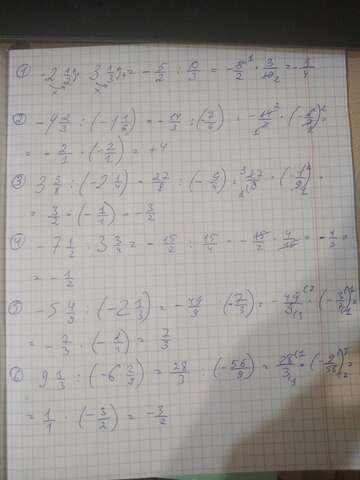 ① -2 1/2 : 3 1/3 = -5/2 : 10/3 = -5/2 · 3/10 = -3/4
② -4 2/3 : (-1 1/6) = -14/3 : (7/6) = -14/3 · (-6/7) =
= -2/1 · (-2/1) = +4
③ 3 3/8 : (-2 1/4) = 27/8 : (-9/4) = 27/8 · (-4/9) =
= 3/2 · (-1/1) = -3/2
④ -7 1/2 : 3 3/4 = -15/2 : 15/4 = -15/2 · 4/15 = -4/2 =
= -1/2
⑤ -5 4/9 : (-2 1/3) = -49/9 (-7/3) = -49/9 · (-3/7) =
= -7/3 · (-1/1) = 7/3
⑥ 9 1/3 : (-6 2/9) = 28/3 (-56/9) = 28/3 · (-9/56) =
= 1/1 · (-3/2) = -3/2